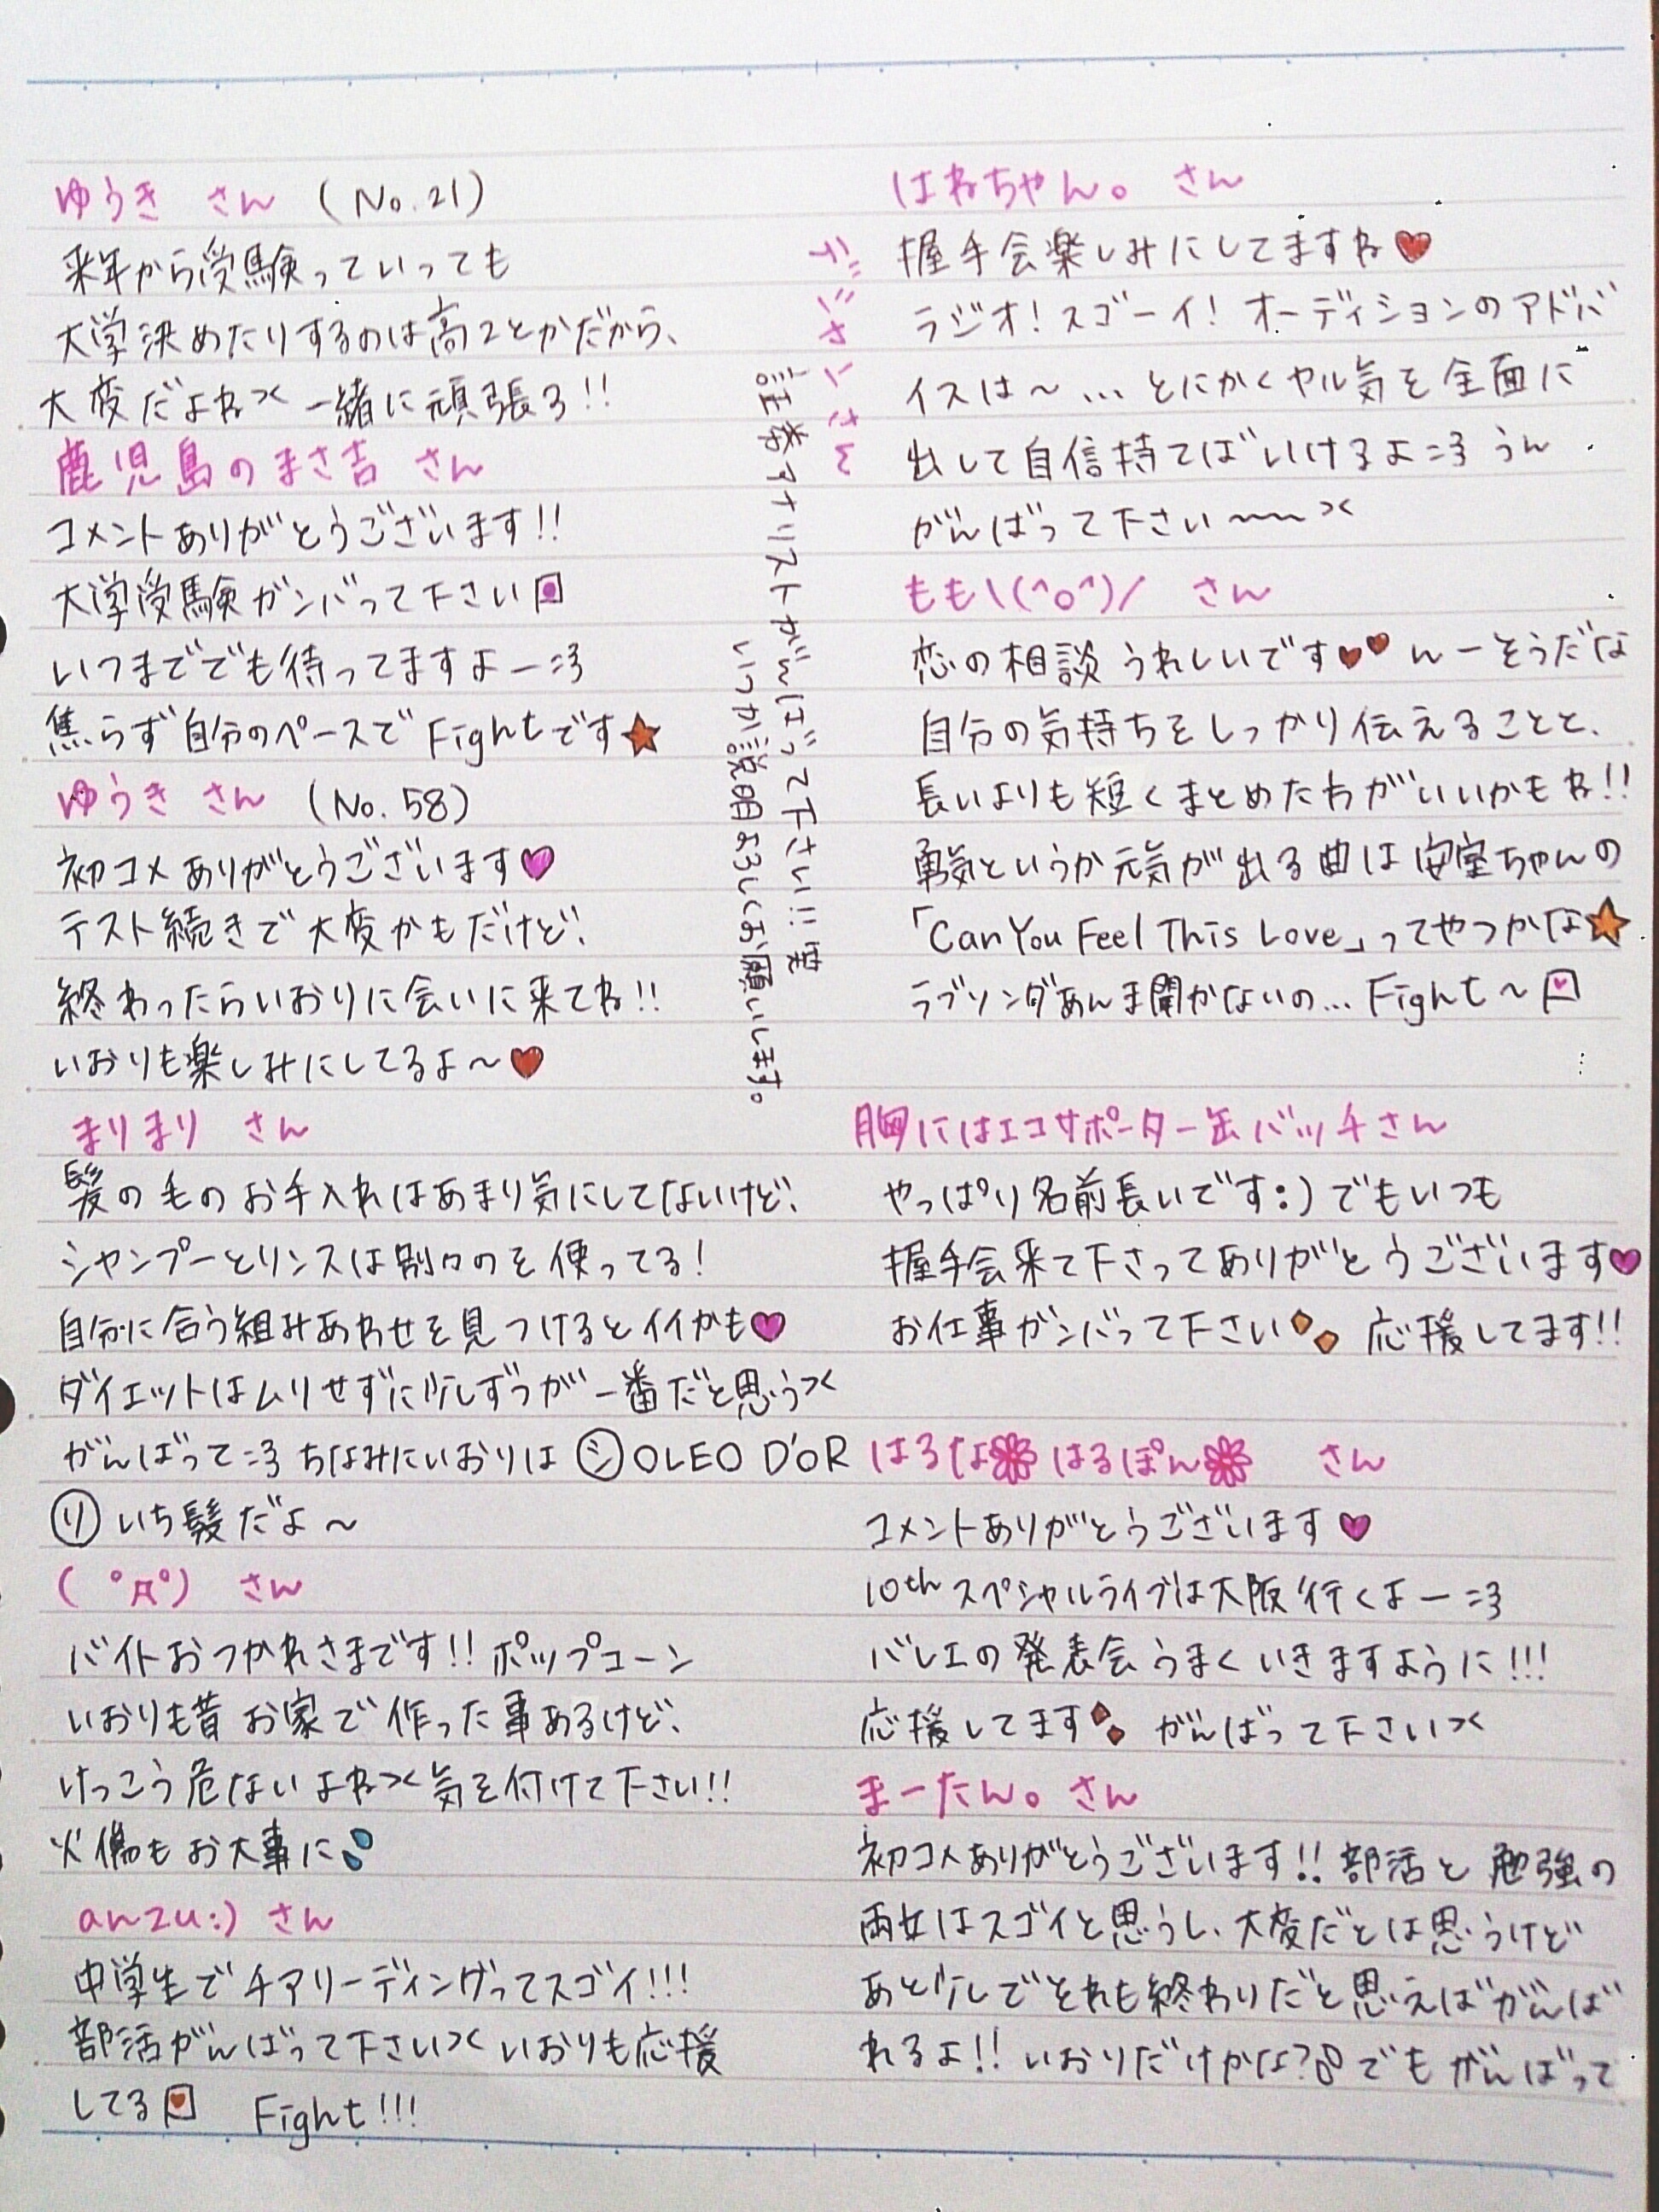 ゆうき さん (No.21)
来年から受験っていっても
大学決めたりするのは高2とかだから、
大変だよね>< 一緒に頑張ろ!!
鹿児島のまさ吉 さん
コメントありがとうございます!!
大学受験ガンバって下さい
いつまででも待ってますよー=3
焦らず自分のペースでFightです★
ゆうき さん (No.58)
初コメありがとうございます♥
テスト続きで大変かもだけど、
終わったらいおりに会いに来てね!!
いおりも楽しみにしてるよ〜♥
まりまり さん
髪の毛のお手入れはあまり気にしてないけど、
シャンプーとリンスは別々のを使ってる!
自分に合う組みあわせを見つけるとイイかも♥
ダイエットはムリせずに少しずつが一番だと思う><
がんばって=3 ちなみにいおりは ㋛OLEO D'OR
㋷いち髪だよ〜
( ゚Д゚) さん
バイトおつかれさまです!! ポップコーン
いおりも昔お家で作った事あるけど、
けっこう危ないよね>< 気を付けて下さい!!
火傷もお大事に
anzu:) さん
中学生でチアリーディングってスゴイ!!!
部活がんばって下さい>< いおりも応援
してる Fight!!!
さいさん
証券アナリストがんばって下さい!!
いつか説明よろしくお願いします。
はねちゃん。 さん
握手会楽しみにしてますね♥
ラジオ!スゴーイ! オーディションのアドバ
イスは〜…とにかくヤル気を全面に
出して自信持てばいけるよ=3 うん
がんばって下さい〜〜><
もも\(^o^)/ さん
恋の相談うれしいです♥♥ んーそうだな
自分の気持ちをしっかり伝えることと、
長いよりも短くまとめたわがいいかもね!!
勇気というか元気が出る曲は安室ちゃんの
「Can You Feel This Love」ってやつかな★
ラブソングあんま聞かないの… Fight〜
胸にはエコサポーター缶バッチさん
やっぱり名前長いです:) でもいつも
握手会来て下さってありがとうございます♥
お仕事ガンバって下さい 応援してます!!
はるな❀はるぽん❀ さん
コメントありがとうございます♥
10thスペシャルライブは大阪行くよー=3
バレエの発表会うまくいきますように!!!
応援してます がんばって下さい><
まーたん。さん
初コメありがとうございます!! 部活と勉強の
両立はスゴイと思うし、大変だとは思うけど
あと少しでそれも終わりだと思えばがんば
れるよ!! いおりだけかな? でもがんばって